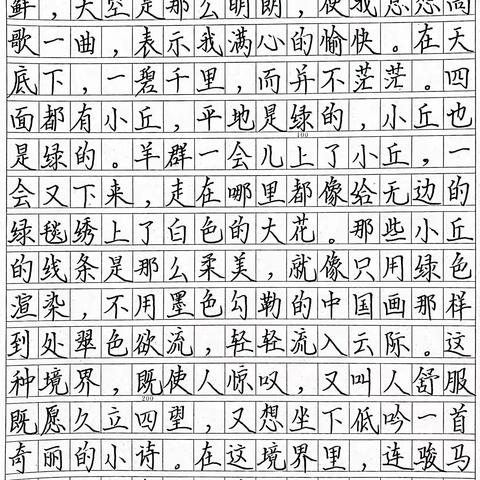 鲜，天空是那么明朗，使我总想高
歌一曲，表示我满心的愉快。在天
底下，一碧千里，而并不茫茫。四
面都有小丘，平地是绿的，小丘也
100
是绿的。羊群一会儿上了小丘，一
会又下来，走在哪里都像给无边的
绿毯绣上了白色的大花。那些小丘
的线条是那么柔美，就像只用绿色
渲染，不用墨色勾勒的中国画那样
到处翠色欲流，轻轻流入云际。这
种境界，既使人惊叹，又叫人舒服
200
既愿久立四望，又想坐下低吟一首
奇丽的小诗。在这境界里，连骏马